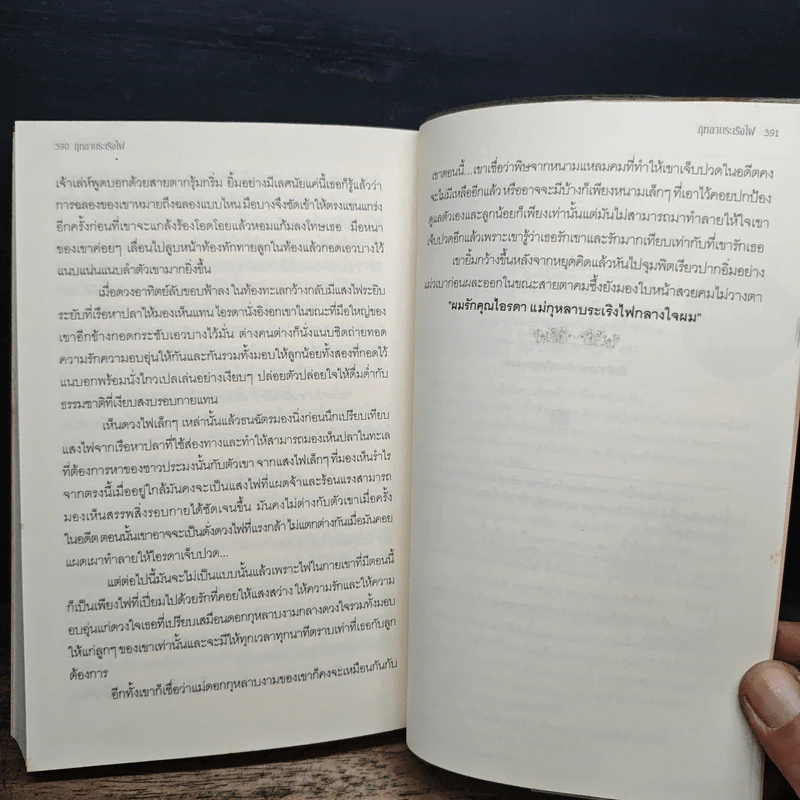 390 กุหลาบระเริงไฟ
เจ้าเล่ห์พูดบอกด้วยสายตากรุ้มกริ่ม ยิ้มอย่างมีเลศนัยแค่นี้เธอก็รู้แล้วว่า
การฉลองของเขาหมายถึงฉลองแบบไหน มือบางจึงซัดเข้าให้ตรงแขนแกร่ง
อีกครั้งก่อนที่เขาจะแกล้งร้องโอดโอยแล้วหอมแก้มลงโทษเธอ มือหนา
ของเขาค่อยๆ เลื่อนไปลูบหน้าท้องทักทายลูกในท้องแล้วกอดเอวบางไว้
แนบแน่นแนบลำตัวเขามากยิ่งขึ้น
เมื่อดวงอาทิตย์ลับขอบฟ้าลง ในท้องทะเลกว้างกลับมีแสงไฟระยิบ
ระยับที่เรือหาปลาให้มองเห็นแทน ไอรดานั่งอิงอกเขาในขณะที่มือใหญ่ของ
เขาอีกข้างกอดกระชับเอวบางไว้มั่น ต่างคนต่างก็นั่งแนบชิดถ่ายทอด
ความรักความอบอุ่นให้กันและกันรวมทั้งมอบให้ลูกน้อยทั้งสองที่กอดไว้
แนบอกพร้อมนั่งไกวเปลเล่นอย่างเงียบๆ ปล่อยตัวปล่อยใจให้ดื่มด่ำกับ
ธรรมชาติที่เงียบสงบรอบกายแทน
เห็นดวงไฟเล็กๆ เหล่านั้นแล้วธนฉัตรมองนิ่งก่อนนึกเปรียบเทียบ
แสงไฟจากเรือหาปลาที่ใช้ส่องทางและทำให้สามารถมองเห็นปลาในทะเล
ที่ต้องการหาของชาวประมงนั้นกับตัวเขา จากแสงไฟเล็กๆ ที่มองเห็นรำไร
จากตรงนี้เมื่ออยู่ใกล้มันคงจะเป็นแสงไฟที่แผดจ้าและร้อนแรงสามารถ
มองเห็นสรรพสิ่งรอบกายได้ชัดเจนขึ้น มันคงไม่ต่างกับตัวเขาเมื่อครั้ง
ในอดีต ตอนนั้นเขาอาจจะเป็นดั่งดวงไฟที่แรงกล้า ไม่แตกต่างกันเมื่อมันคอย
แผดเผาทำลายให้ไอรดาเจ็บปวด...
แต่ต่อไปนี้มันจะไม่เป็นแบบนั้นแล้วเพราะไฟในกายเขาที่มีตอนนี้
ก็เป็นเพียงไฟที่เปี่ยมไปด้วยรักที่คอยให้แสงสว่าง ให้ความรักและให้ความ
อบอุ่นแก่ดวงใจเธอที่เปรียบเสมือนดอกกุหลาบงามกลางดวงใจรวมทั้งมอบ
ให้แก่ลูกๆ ของเขาเท่านั้นและจะมีให้ทุกเวลาทุกนาทีตราบเท่าที่เธอกับลูก
ต้องการ
อีกทั้งเขาก็เชื่อว่าแม่ดอกกุหลาบงามของเขาก็คงจะเหมือนกันกับ
กุหลาบระเริงไฟ 391
เขาตอนนี้...เขาเชื่อว่าพิษจากหนามแหลมคมที่ทำให้เขาเจ็บปวดในอดีตคง
จะไม่มีเหลืออีกแล้ว หรืออาจจะมีบ้างก็เพียงหนามเล็กๆ ที่เอาไว้คอยปกป้อง
ดูแลตัวเองและลูกน้อยก็เพียงเท่านั้นแต่มันไม่สามารถมาทำลายให้ใจเขา
เจ็บปวดอีกแล้วเพราะเขารู้ว่าเธอรักเขาและรักมากเทียบเท่ากับที่เขารักเธอ
เขายิ้มกว้างขึ้นหลังจากหยุดคิดแล้วหันไปจุมพิตเรียวปากอิ่มอย่าง
แผ่วเบาก่อนผละออกในขณะสายตาคมซึ้งยังมองใบหน้าสวยคมไม่วางตา
"ผมรักคุณไอรดา แม่กุหลาบระเริงไฟกลางใจผม"